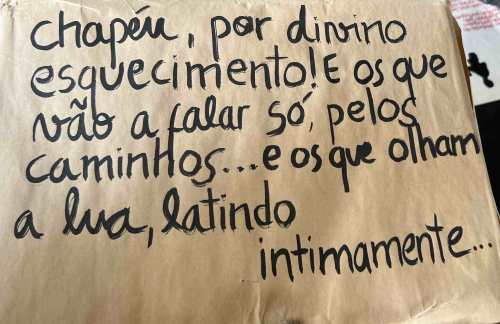 chapéu, por divino
esquecimento! E os que
vão a falar só, pelos
caminhos... e os que olham
a lua, latindo
intimamente...